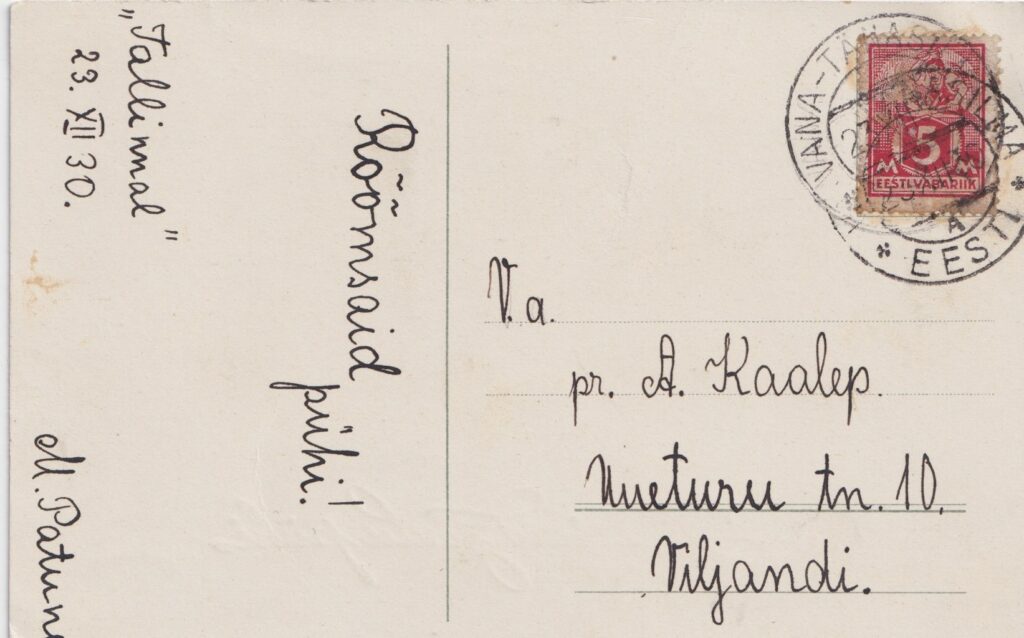 „Tallinnal"
23. XII 30.
Rõõmsaid
pühi!
VANA-
EESTI
A
5
M M
EESTI.VABARIIK
V. a.
pr. A. Kaalep.
Uueturu tn. 10.
Viljandi.